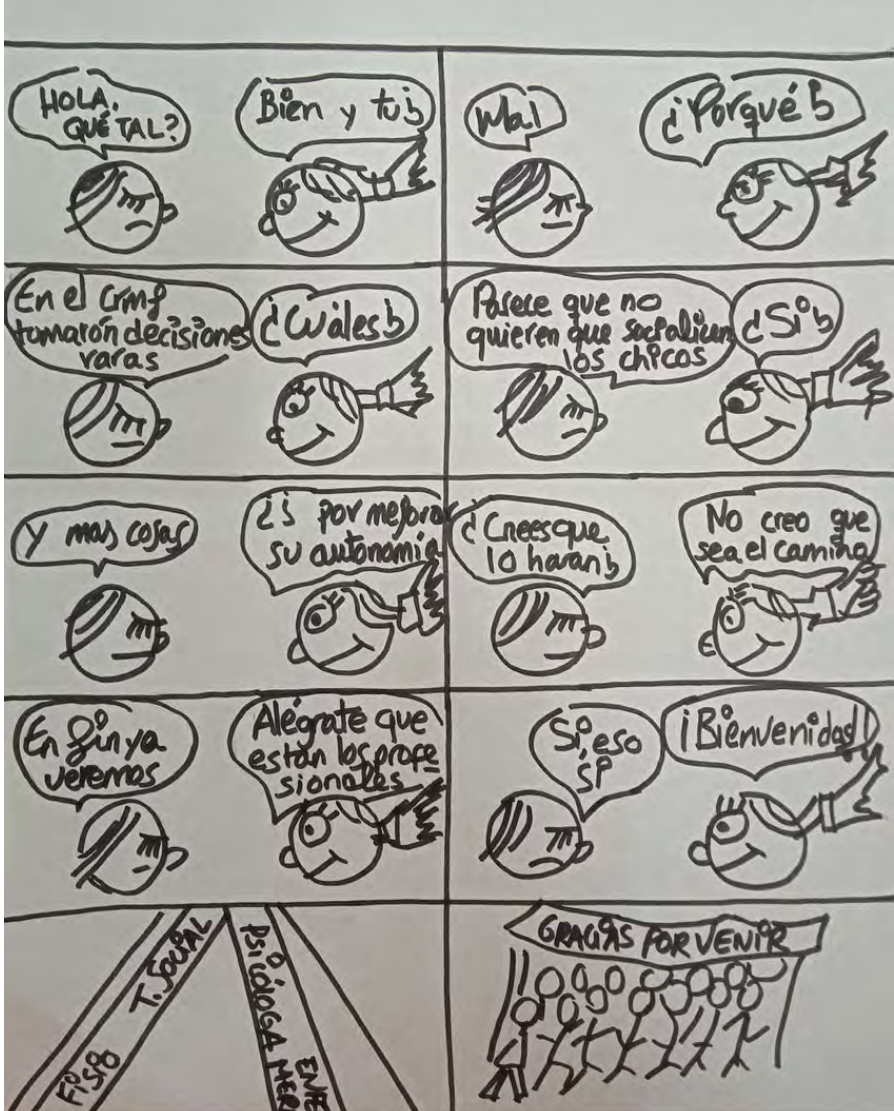 HOLA.
QUÉ TAL?
Bien y tu?
Mal
¿Porqué?
En el Crmf
tomarón decisiones
raras
¿Cuáles?
Parece que no
quieren que socialicen
los chicos
¿Si?
Y mas cosas
¿s por mejorar
su autonomía
¿Crees que
lo haran?
No creo que
sea el camino
En fin ya
veremos
Alégrate que
están los profe
sionales
Si, eso
si
¡Bienvenidas!
FISIO T. SOCIAL
PSICÓLOGA
GRACIAS POR VENIR